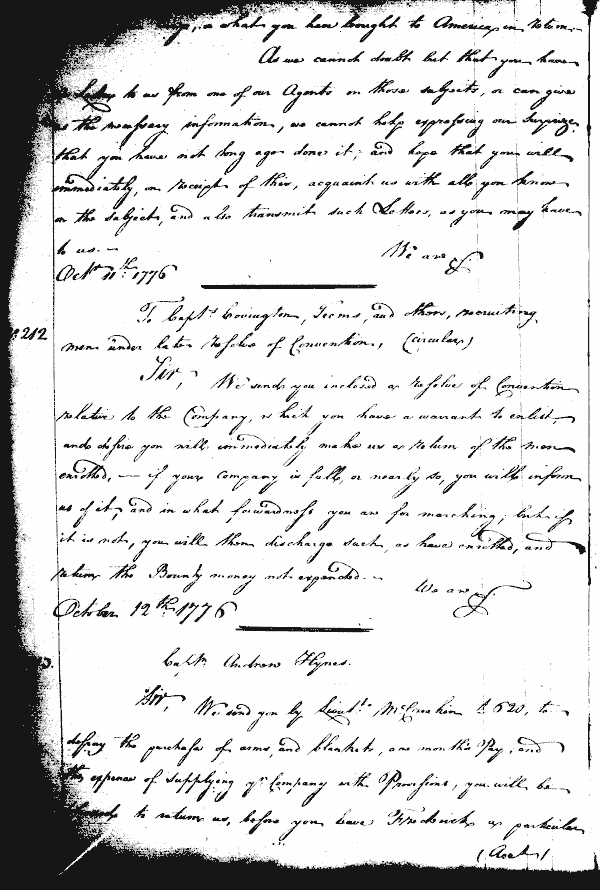 or what you have bought to America in return.
As we cannot doubt but that you have
to us from one of our Agents on those subjects, or can give
us the necessary information, we cannot help expressing our Surprize
that you have not long ago done it; and hope that you will
immediately, on receipt of this, acquaint us with all you know
on the subject, and also transmit such Letters, as you may have
to us. —
We are &
Octr. 11th. 1776
To Capts Covington, Teems, and others, recruiting
212
men under late resolve of Convention, (circular)
Sir, We send you inclosed a resolve of Convention
relative to the Company, which you have a warrant to enlist,
and desire you will immediately make us a return of the men
enrolled, — if your company is full, or nearly so, you will inform
us of it, and in what forwardness you are for marching; but if
it is not, you will then discharge such, as have enrolled, and
return the Bounty money not expended. —
We are &
October 12th. 1776
Captn. Andrew Hynes.
Sir, We send you by Lieutt. £ 620, to
defray the purchase of arms, and blankets, one months Pay, and
the expense of supplying yr. Company with Provisions, you will be
to return us, before you leave Frederick a particular
(Acct)